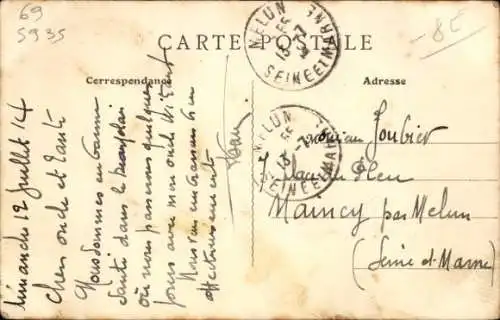 69
5935
-8€
CARTE POSTALE
Correspondance
Adresse
MELUN
13-7
SEINE ET MARNE
MELUN
13-7
SEINE ET MARNE
Dimanche 12 Juillet 14
Cher oncle et tante
Nous sommes en bonne
santé dans le
où nous passerons quelques
jours avec mon oncle
Nous vous embrassons bien
affectueusement
Monsieur Joubier
Place
Maincy par Melun
(Seine et Marne)